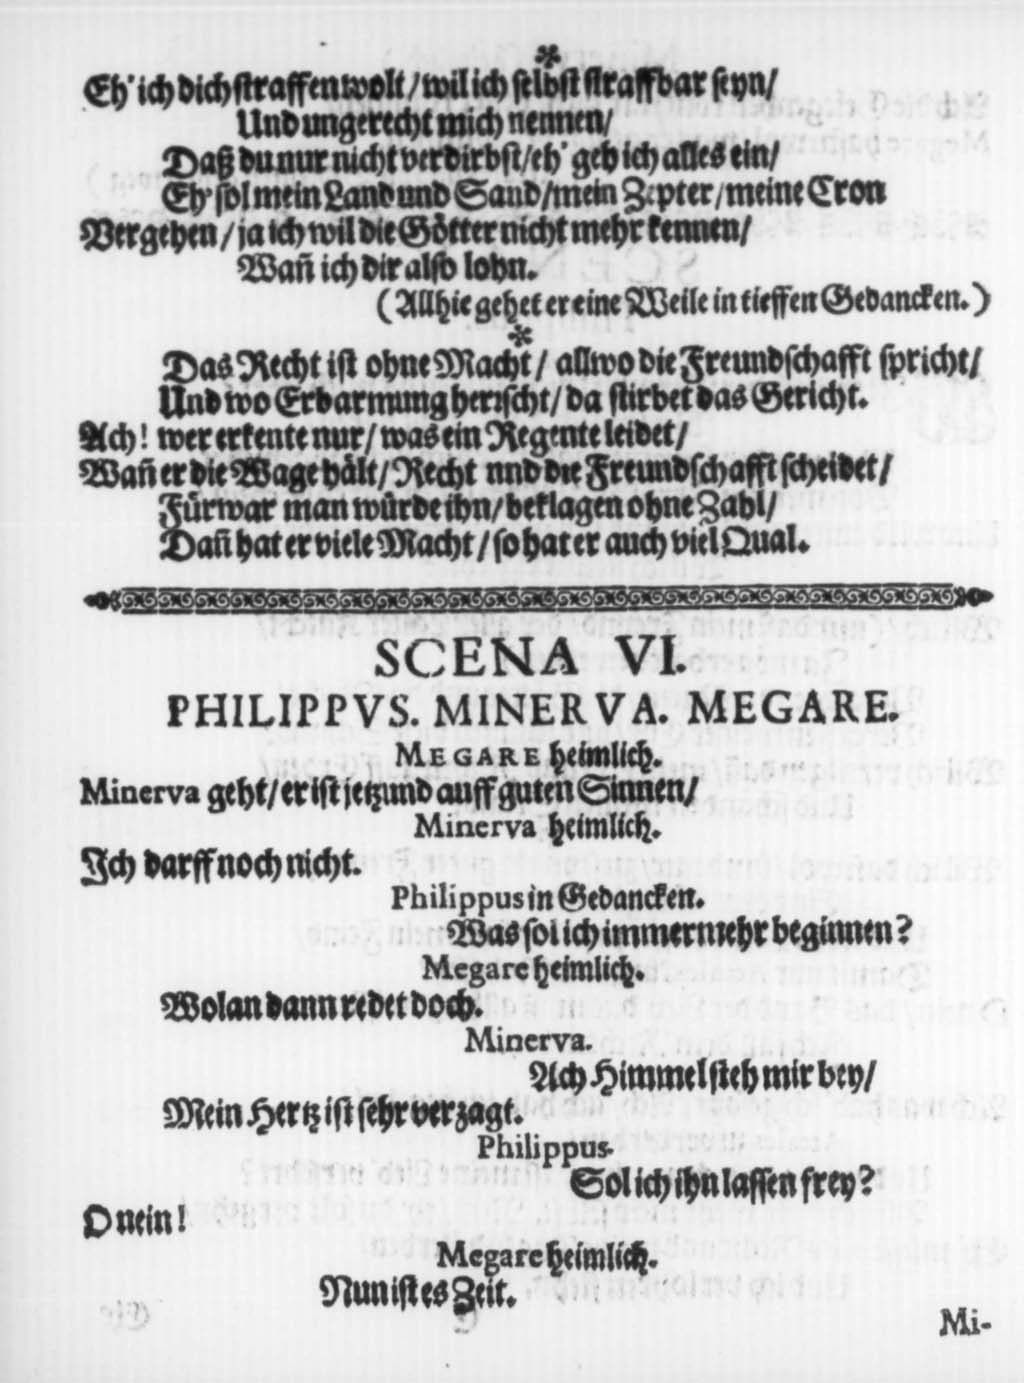 *
Eh' ich dich straffen wolt / wil ich selbst straffbar seyn /
Und ungerecht mich nennen /
Daß du nur nicht verdirbst / eh' geh ich alles ein /
Eh' sol mein Land und Sand / mein Zepter / meine Cron
Vergehen / ja ich wil die Götter nicht mehr kennen /
Wañ ich dir also lohn.
( Allhie gehet er eine Weile in tieffen Gedancken. )
*
Das Recht ist ohne Macht / allwo die Freundschafft spricht /
Und wo Erbarmung herꝛscht / da stirbet das Gericht.
Ach! wer erkente nur / was ein Regente leidet /
Wañ er die Wage hält / Recht nnd die Freundschafft scheidet /
Fürwar man würde ihn / beklagen ohne Zahl /
Dañ hat er viele Macht / so hat er auch viel Qual.
SCENA VI.
PHILIPPVS. MINERVA. MEGARE.
MEGARE heimlich.
Minerva geht / er ist jetzund auff guten Sinnen /
Minerva heimlich.
Ich darff noch nicht.
Philippus in Gedancken.
Was sol ich immermehr beginnen?
Megare heimlich.
Wolan dann redet doch.
Minerva.
Ach Himmel steh mir bey /
Mein Hertz ist sehr verzagt.
Philippus.
Sol ich ihn lassen frey?
O nein!
Megare heimlich.
Nun ist es Zeit.
Mi-